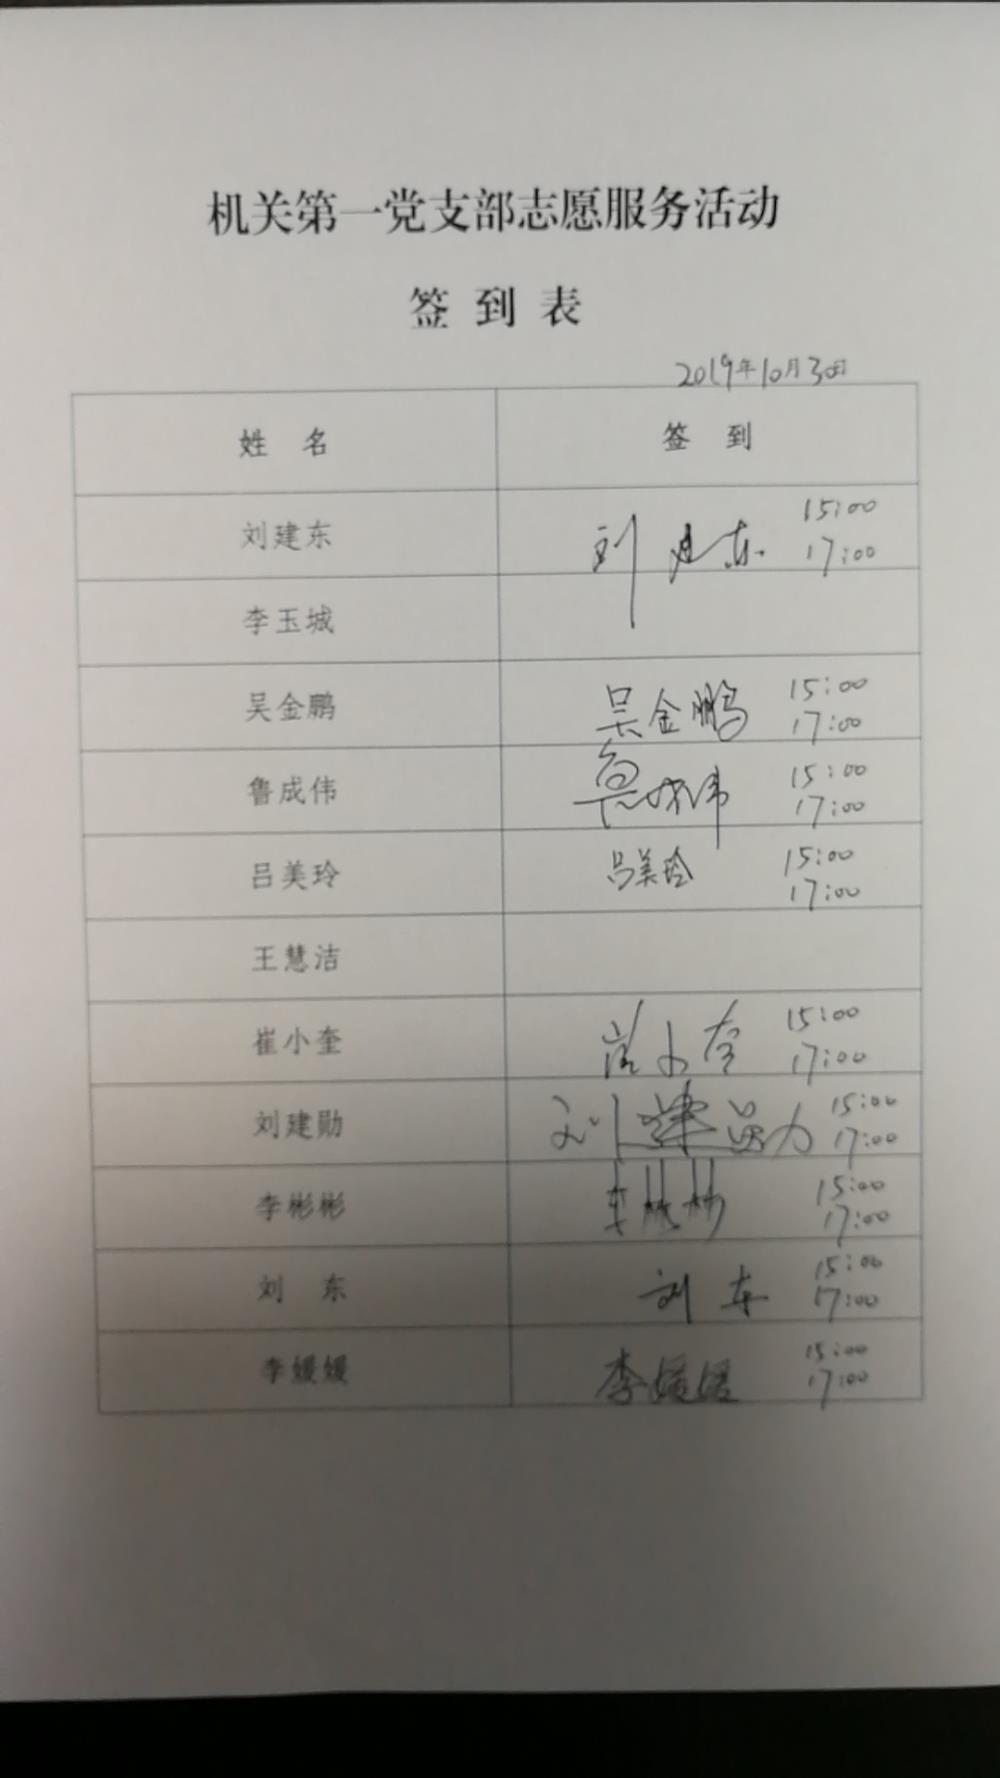 机关第一党支部志愿服务活动
签 到 表
2019年10月30日
姓 名 签 到
刘建东 刘建东 15:00
17:00
李玉城
吴金鹏 吴金鹏 15:00
17:00
鲁成伟 鲁成伟 15:00
17:00
吕美玲 吕美玲 15:00
17:00
王慧洁
崔小奎 崔小奎 15:00
17:00
刘建勋 刘建勋 15:00
17:00
李彬彬 李彬彬 15:00
17:00
刘 东 刘东 15:00
17:00
李媛媛 李媛媛 15:00
17:00